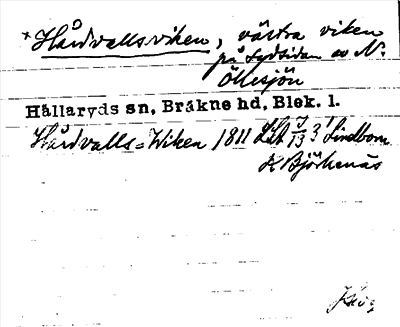 * Hårdvallsviken, västra viken
på sydsidan av N.
Öllesjön
Hällaryds sn, Bräkne hd, Blek. l.
Hårdvalls=Wiken 1811 LSA 7/13 3' Lindbom
K Björkenäs